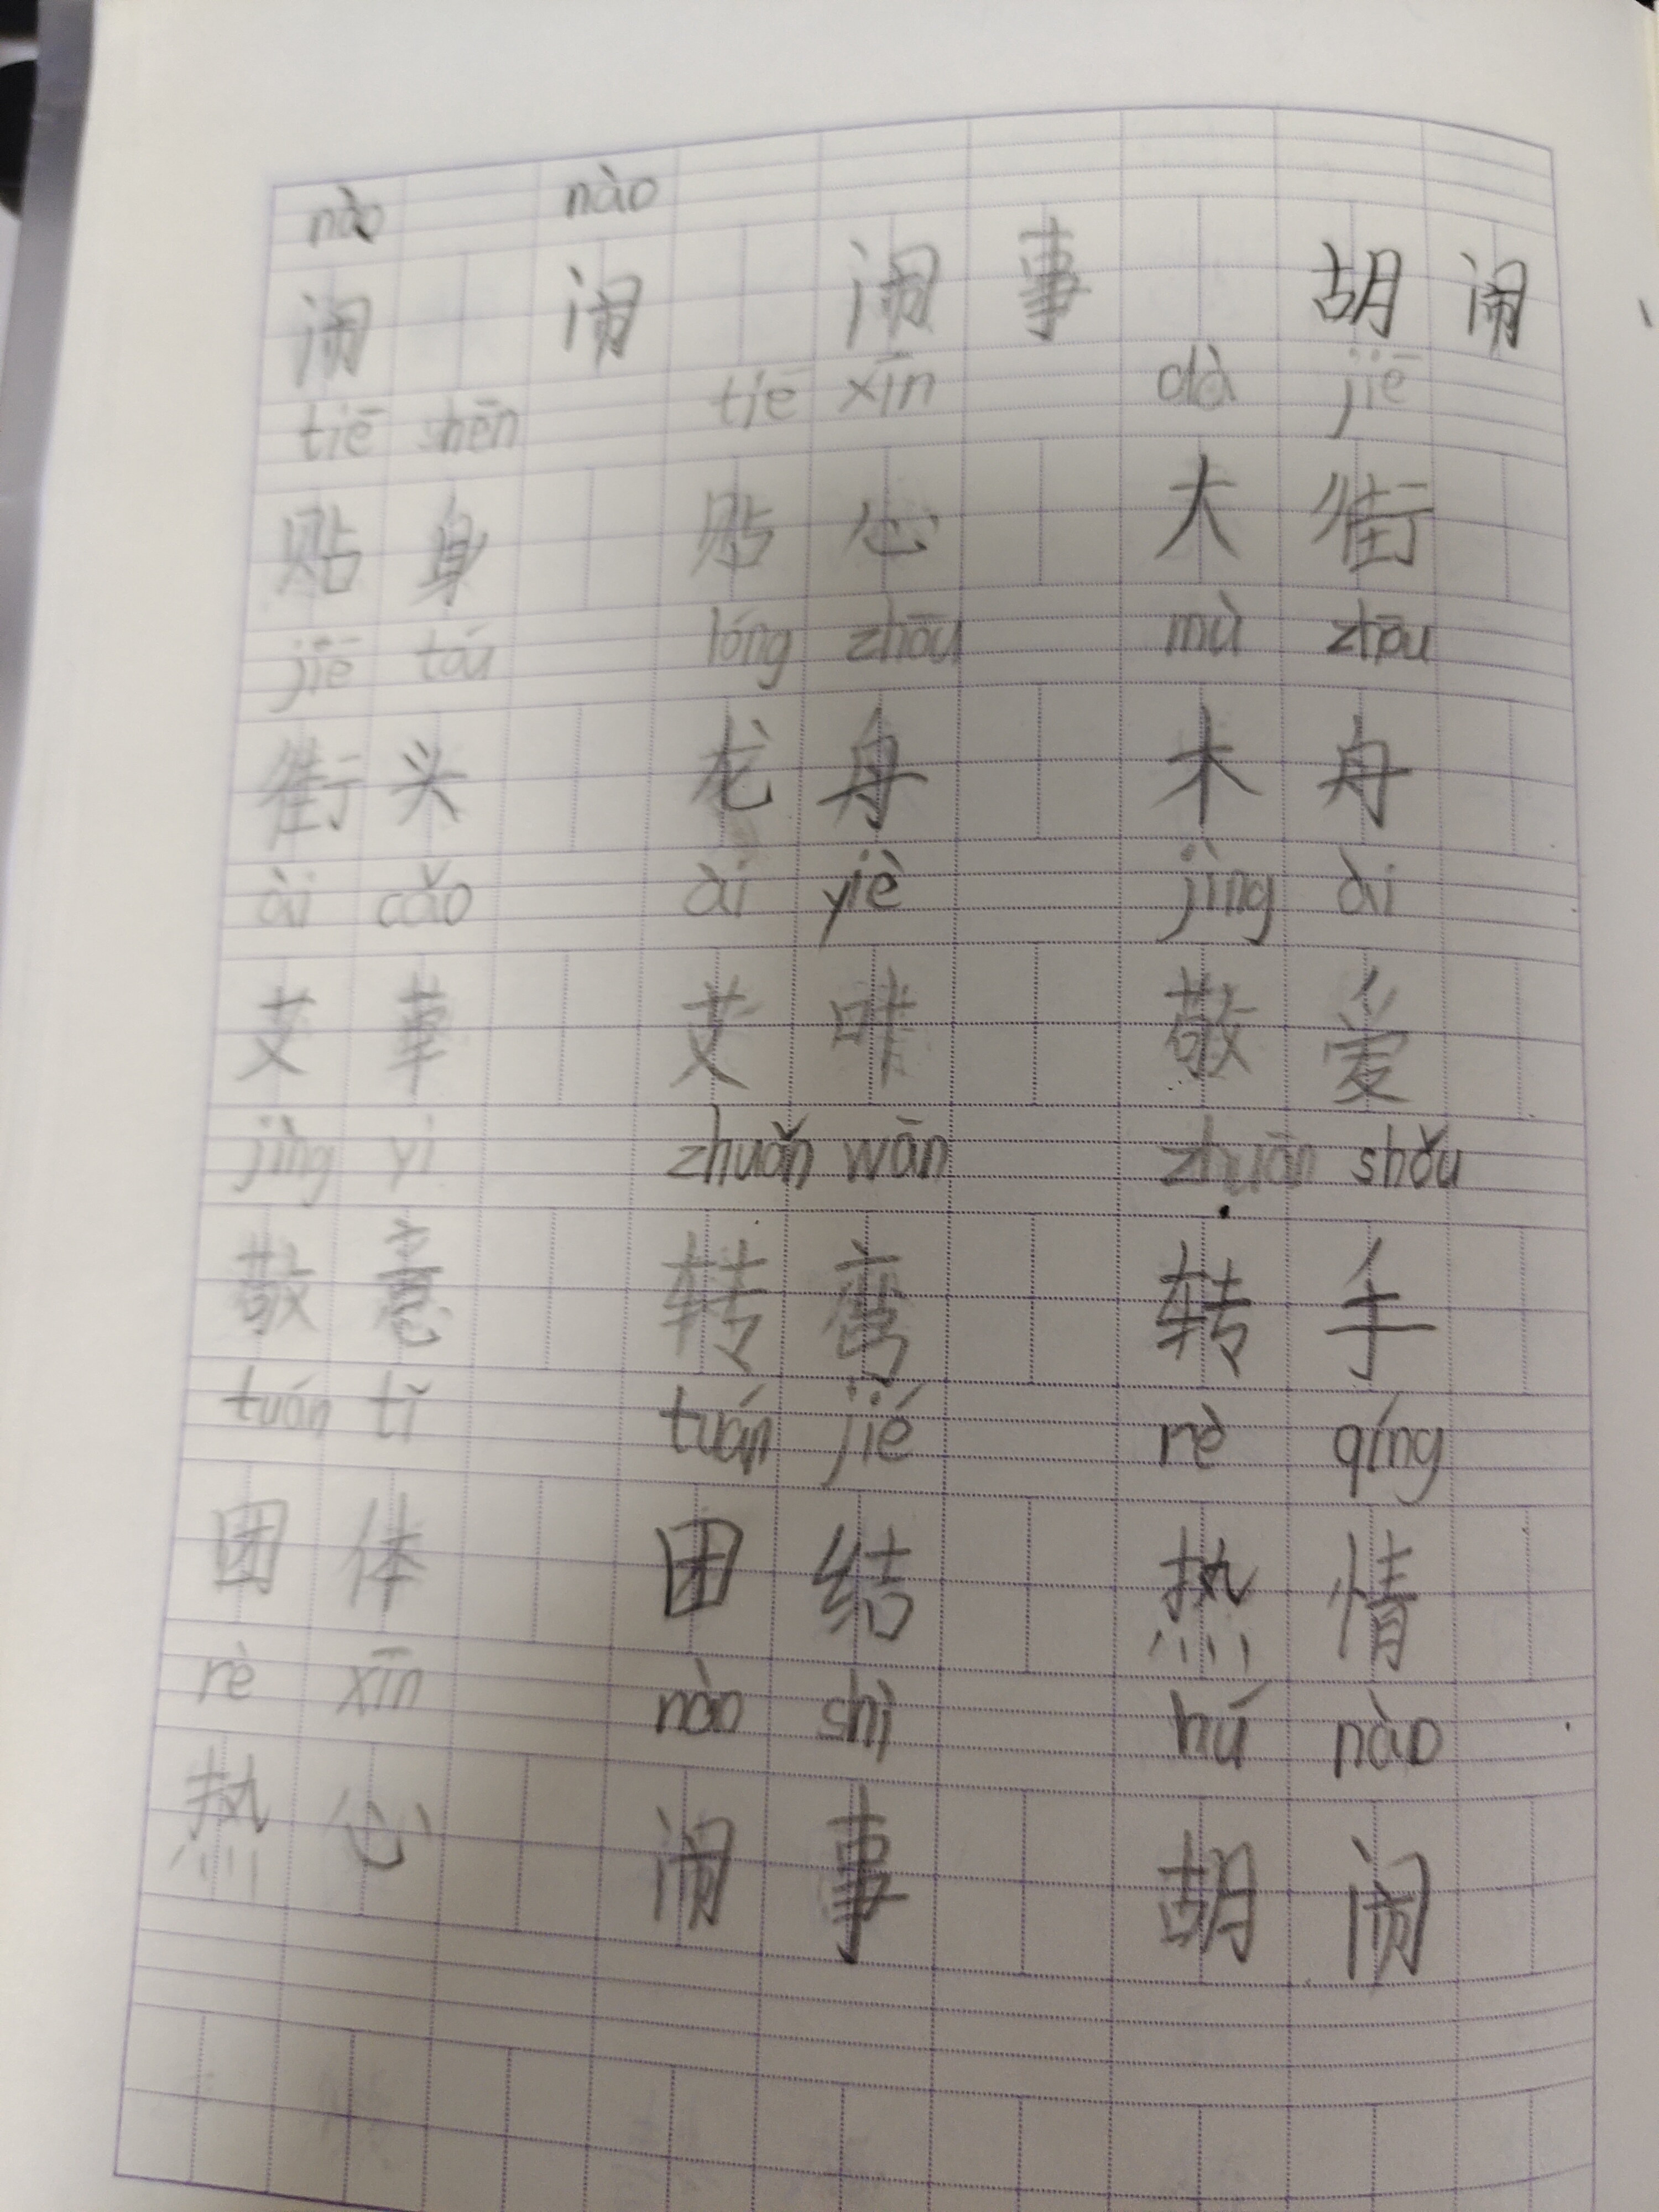 nào nào
闹 闹 闹 事 胡 闹
tiē shēn tiē xīn dà jiē
贴 身 贴 心 大 街
jiē tóu lóng zhōu mù zhōu
街 头 龙 舟 木 舟
ài cǎo ài yiè jìng ài
艾 草 艾 叶 敬 爱
jìng yì zhuǎn wān zhuǎn shǒu
敬 意 转 弯 转 手
tuán tǐ tuán jié rè qíng
团 体 团 结 热 情
rè xīn nào shì hú nào
热 心 闹 事 胡 闹